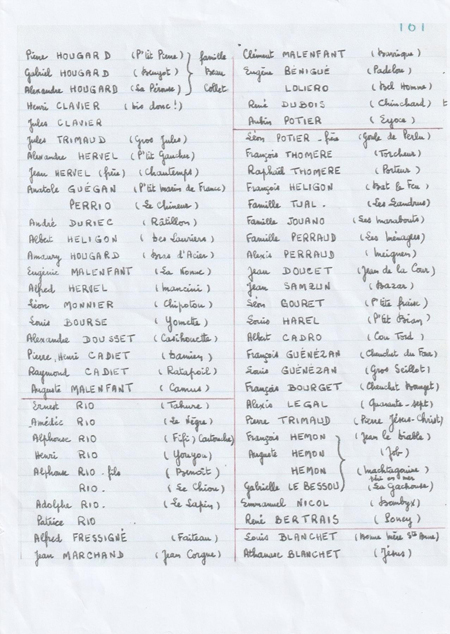 161
Pierre HOUGARD (P'tit Pierre) } famille
Gabriel HOUGARD } Beau
Alexandre HOUGARD (La Pérouse) } Collet
Henri CLAVIER (bis donc!)
Jules CLAVIER
Jules TRIMAUD (Gros Jules)
Alexandre HERVEL (P'tit Gauches)
Jean HERVEL (frère) (Chantemps)
Anatole GUÉGAN (P'tit marin de France)
PERRIO (Le Chineur)
André DURIEC (Ratillon)
Albert HELIGON (des Lauriers)
Amaury HOUGARD (Bras d'Acier)
Eugénie MALENFANT (La Nonne)
Alfred HERVEL (Mancini)
Léon MONNIER (Chipotou)
Louis BOURSE (Yomette)
Alexandre DOUSSET (Casihouette)
Pierre, Henri CADIET (Damien)
Raymond CADIET (Ratapoil)
Auguste MALENFANT (Camus)
Ernest RIO (Tahure)
Amédée RIO (Le Nègre)
Alphonse RIO (Fifi) (Cartouche)
Henri RIO (Youyou)
Alphonse RIO - fils (Benoît)
RIO. (Le Chiou)
Adolphe RIO. (Le Lapin)
Patrice RIO
Alfred FRESSIGNÉ (Faiteau)
Jean MARCHAND (Jean Corgne)
Clément MALENFANT (Barrique)
Eugène BENIGUÉ (Padelou)
LOLIERO (Bel Homme)
René DUBOIS (Chinchard) t
Aubin POTIER (Eyoce)
Léon POTIER - frère (Goule de Perlu)
François THOMERE (Torcheur)
Raphaël THOMERE (Porteur)
François HELIGON (Bat le Feu)
Famille TUAL. (Les Leandrus)
Famille JOUANO (Les Marabouts)
Famille PERRAUD (Les Ménages)
Alexis PERRAUD (Meignen)
Jean DOUCET (Jean de la Cour)
Jean SAMZUN (Bazar)
Léon GOURET (P'tite fraise)
Louis HAREL (P'tit Bian)
Albert CADRO (Cou Tord)
François GUÉNÉZAN (Chouchot du Four)
Louis GUÉNÉZAN (Gros Seillot)
François BOURGET (Chouchot Bourget)
Alexis LE GAL (Quarante-sept)
Pierre TRIMAUD (Pierre Jésus-Christ)
François HEMON (Jean le diable)
Auguste HEMON (Job)
HEMON (Machtagouine)
Gabrielle LE BESSOU (La Gachouse)
Emmanuel NICOL (Bombyx)
René BERTRAIS (Loncy)
Louis BLANCHET (Bonne Mère Ste Anne)
Athanase BLANCHET (Jésus)